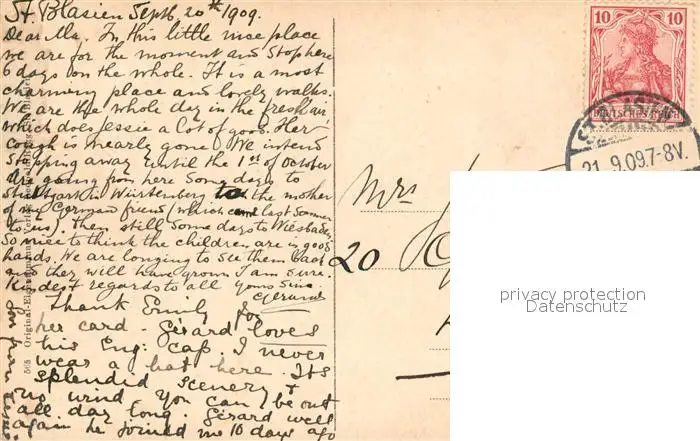 St. Blasien Sept. 20th 1909.
Dear Ma. In this little nice place
we are for the moment and stop here
6 days on the whole. It is a most
charming place and lovely walks.
We are the whole day in the fresh air
which does Jessie a lot of good. Her
cough is nearly gone. We intend
stopping away until the 1st of October
are going from here some days to
Stuttgart in Würtemberg to the mother
of my German friend (which came last summer
to us). then still some days to Wiesbaden
So nice to think the children are in good
hands. We are longing to see them back
they will have grown I am sure.
Kindest regards to all yours sinc.
Thank Emily for
her card. Gérard loves
his Eng: cap. I never
wear a hat here. Its
splendid scenery &
no wind you can be out
all day long. Gérard well
again he joined me 10 days ago
565 Original-Eigentum
Mrs
20
10 10
DEUTSCHES REICH
ST. BLASIEN
21.9.09.7-8V.
privacy protection
Datenschutz